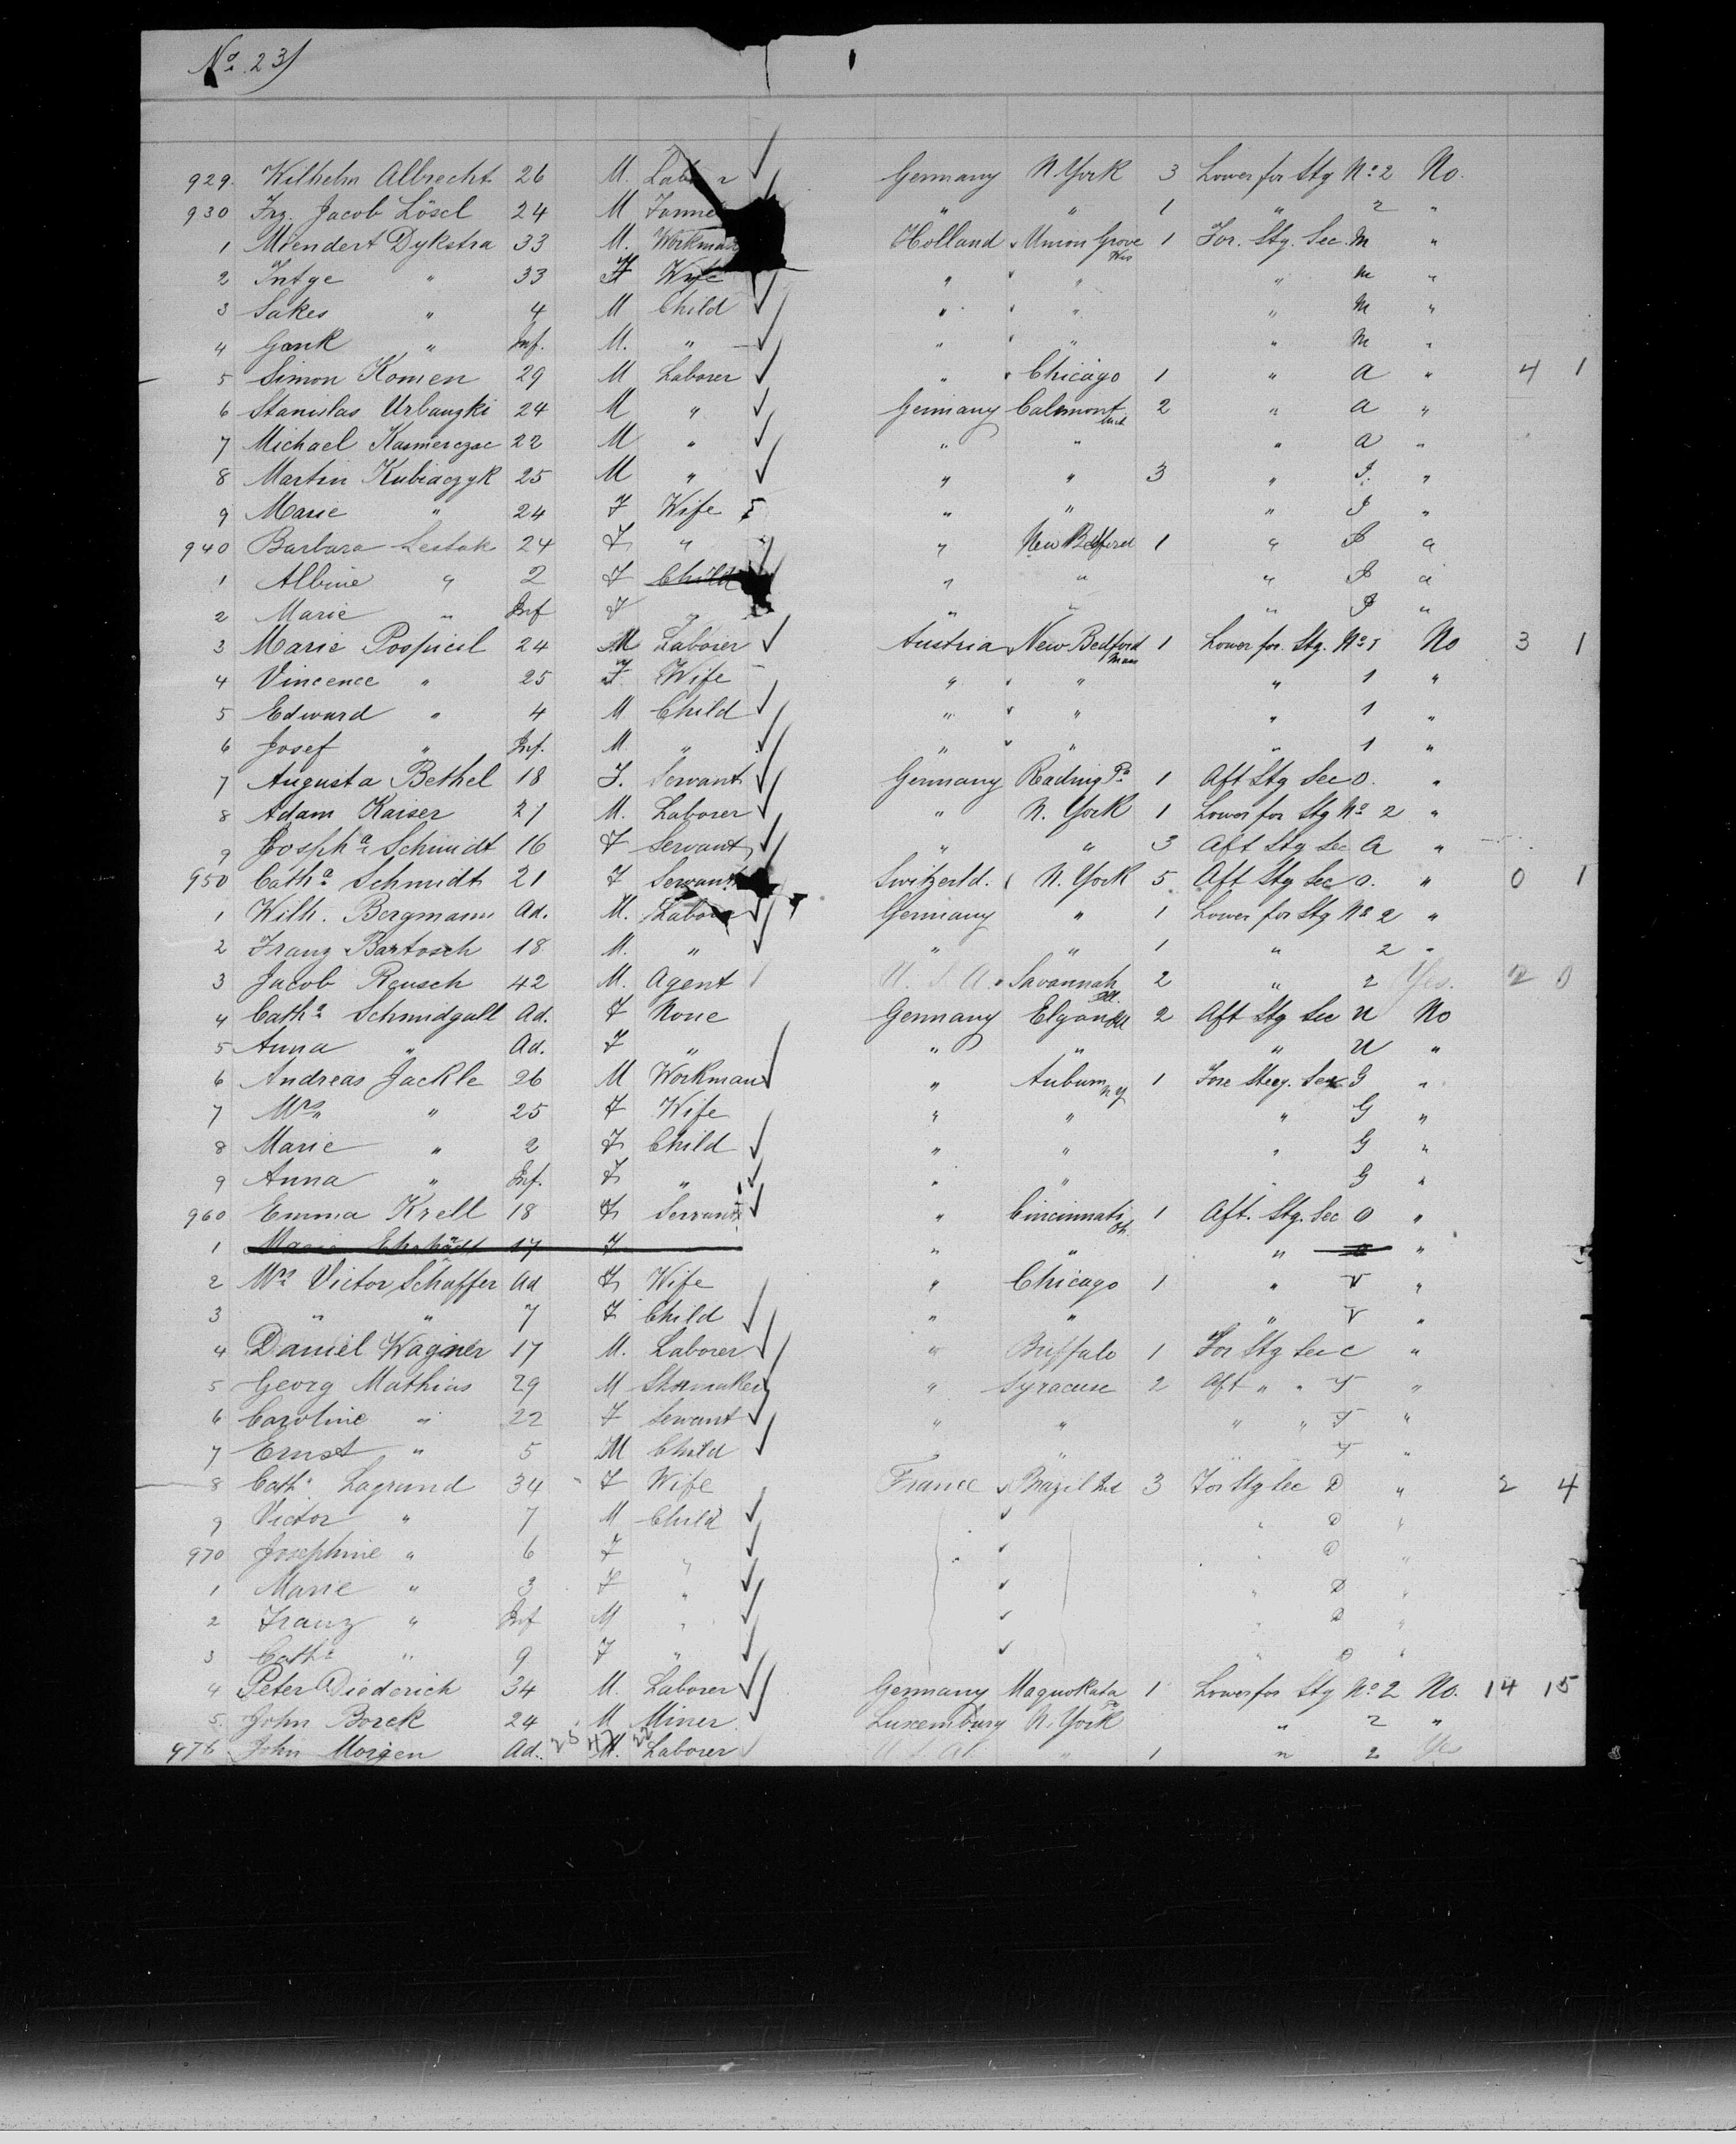 No. 23)
929. Wilhelm Albrecht 26 M. Germany N. York 3 Lower for Stg No 2 No.
930 Frz. Jacob Lösel 24 M " " 1 " 2 "
1 Miendert Dykstra 33 M. Workman Holland Union Grove Wis 1 For. Stg. Sec. M "
2 Intge " 33 F Wife " " " M "
3 Sakes " 4 M Child " " " M "
4 " Inf. M. " " " " M "
5 Simon Komen 29 M Laborer " Chicago 1 " a " 4 1
6 Stanislas Urbanzki 24 M " Germany 2 " a "
7 Michael Kasmerczac 22 M " " " " a "
8 Martin Kubiaczyk 25 M " " " 3 " J. "
9 Marie " 24 F Wife " " " J "
940 Barbara Lestak 24 F " " New Bedford 1 " J "
1 Albine " 2 F Child " " " J "
2 Marie " Inf F " " " " J "
3 Marie Pospicil 24 M Laborer Austria New Bedford Mass 1 Lower for. Stg. No 1 No 3 1
4 Vincence " 25 F. Wife " " " 1 "
5 Edward " 4 M Child " " " 1 "
6 Josef " Inf. M. " " " " 1 "
7 Augusta Bethel 18 F. Servant Germany Reading Pa 1 Aft Stg Sec O. "
8 Adam Kaiser 21 M. Laborer " N. York 1 Lower for Stg No 2 "
9 Josepha Schmidt 16 F Servant " " 3 Aft Stg Sec a "
950 Catha Schmidt 21 F Servant Switzerld. N. York 5 Aft Stg Sec o. " 0 1
1 Wilh. Bergmann Ad. M. Labor Germany " 1 Lower for Stg No 2 "
2 Franz Bartosch 18 M. " " " 1 " 2 "
3 Jacob Rausch 42 M. Agent U. S. A. Savannah 2 " 2 Yes. 2 0
4 Catha Schmidgall Ad. F None Germany 2 Aft Stg Sec U No
5 Anna " Ad. F " " " " U "
6 Andreas Jackle 26 M Workman " Auburn N Y 1 Fore Steeg. Sec G "
7 Mrs " 25 F Wife " " " G "
8 Marie " 2 F Child " " " G "
9 Anna " Inf. F " " " " G "
960 Emma Krell 18 F Servant " Cincinnati Oh 1 Aft. Stg. Sec O "
1 Marie 17 F " " " "
2 Mrs Victor Schaffer Ad F Wife " Chicago 1 " V "
3 " " 7 F Child " " " V "
4 Daniel Wagner 17 M. Laborer " Buffalo 1 For Stg Sec C "
5 Georg Mathias 29 M Shomaker " Syracuse 2 Aft " " T "
6 Caroline " 22 F Servant " " " " T "
7 Ernst " 5 M Child " " " T "
8 Cath. Lagrand 34 F Wife France Brazil Ind 3 For Stg Sec D " 2 4
9 Victor " 7 M Child " D "
970 Josephine " 6 F " " D "
1 Marie " 3 F " " D "
2 Franz " Inf M " " D "
3 Catha " 9 F " " D "
4 Peter Diederich 34 M. Laborer Germany 1 Lower for Stg No 2 No. 14 15
5. John Borck 24 M Miner Luxemburg N. York " 2 "
976 John Morgen Ad. M. Laborer U S A. " 1 " 2 Yes